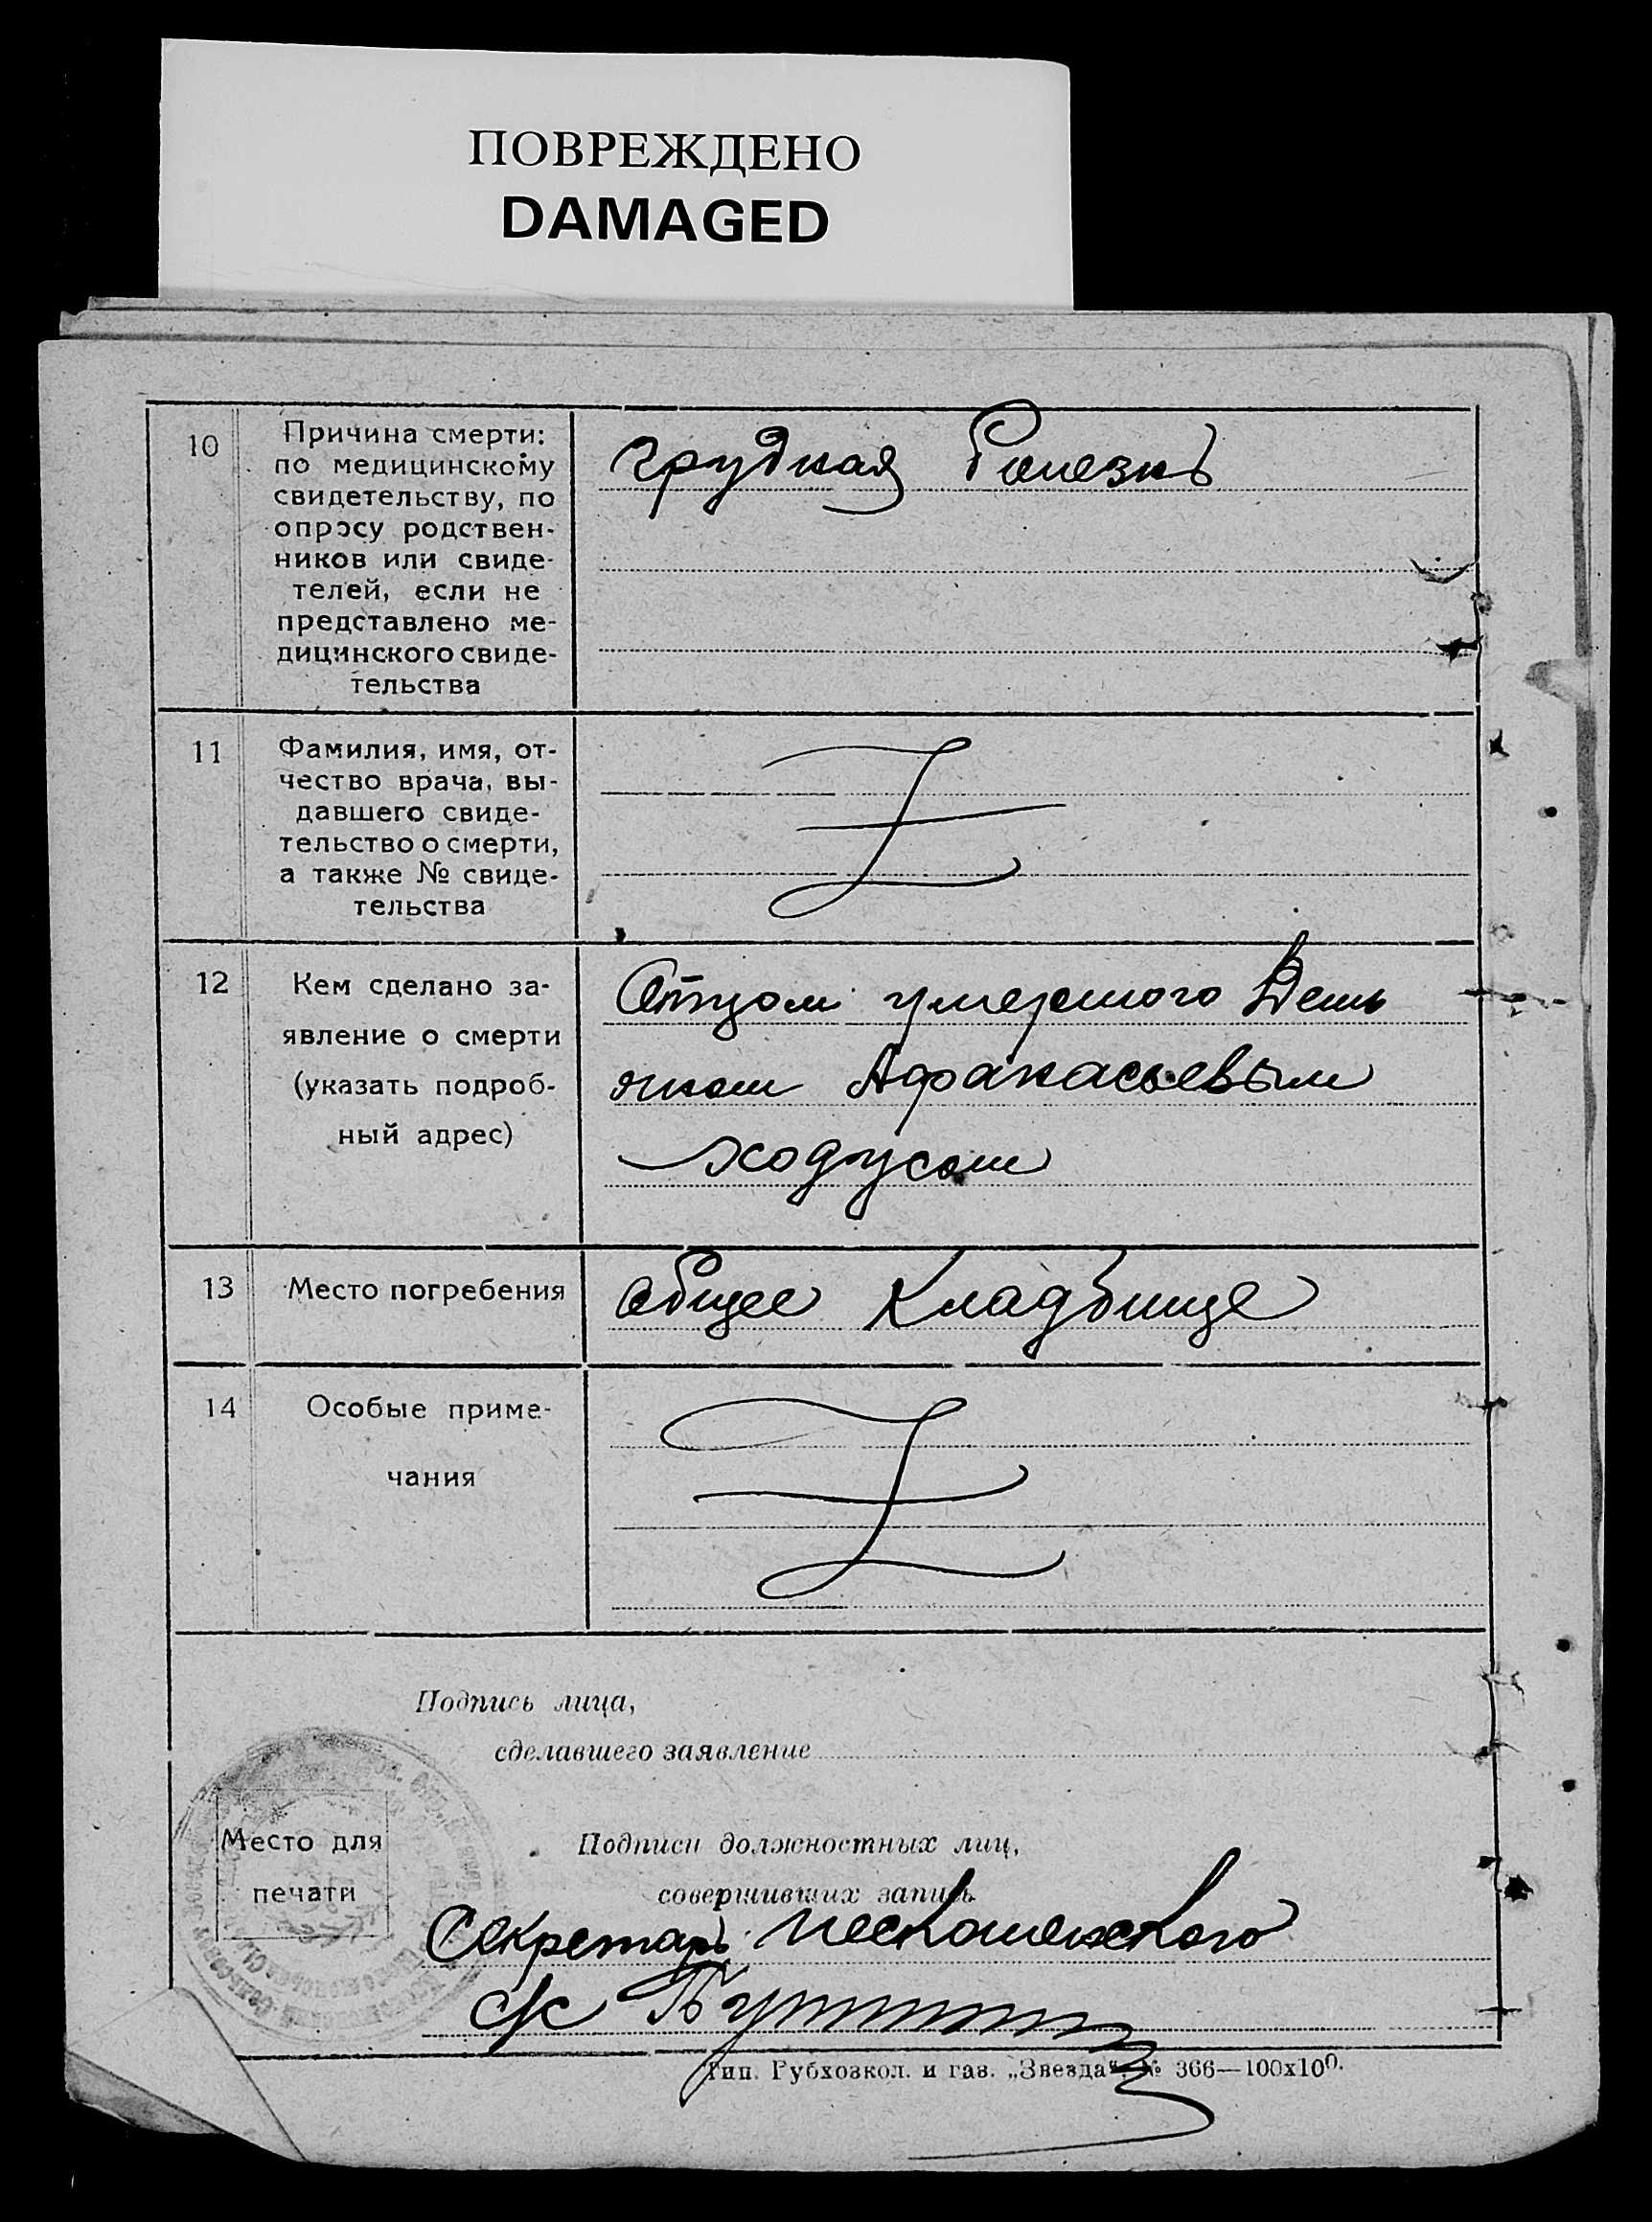 ПОВРЕЖДЕНО
DAMAGED
10
Причина смерти:
по медицинскому
свидетельству, по
опросу родствен-
ников или свиде-
телей, если не
представлено ме-
дицинского свиде-
тельства
грудная болезнь
11
Фамилия, имя, от-
чество врача, вы-
давшего свиде-
тельство о смерти,
а также № свиде-
тельства
12
Кем сделано за-
явление о смерти
(указать подроб-
ный адрес)
Отцом умершого Демь
яном Афанасьевым
Ходусом
13
Место погребения
Общее Кладбище
14
Особые приме-
чания
Подпись лица,
сделавшего заявление
Место для
печати
Подписи должностных лиц,
совершивших запись
Секретарь
с/с
Тип. Губхозкол. и газ. „Звезда“. № 366—100х100.